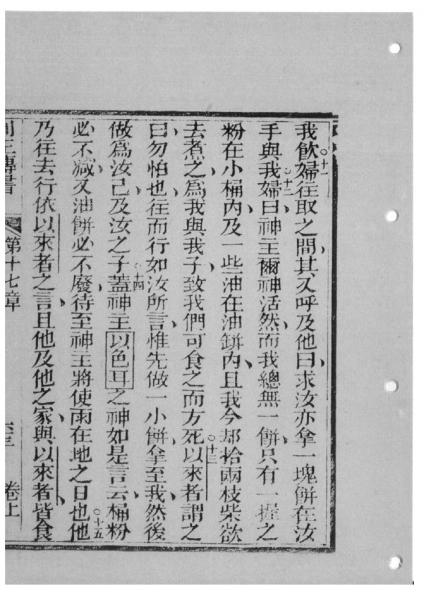 我飲○十一婦往取之間其又呼及他曰求汝亦拿一塊餅在汝
手與我○十二婦曰神主爾神活然而我總無一餅只有一握之
粉在小桶內及一些油在油缾內且我今却拾兩枝柴欲
去煮之為我與我子致我們可食之而方死○十三以來者謂之
曰勿怕也往而行如汝所言惟先做一小餅拿至我然後
做為汝己及汝之子○十四蓋神主以色耳之神如是言云桶粉
必不減又油缾必不廢待至神主將使雨在地之日也○十五他
乃往去行依以來者之言且他及他之家與以來者皆食
王傳書 第十七章 卷上